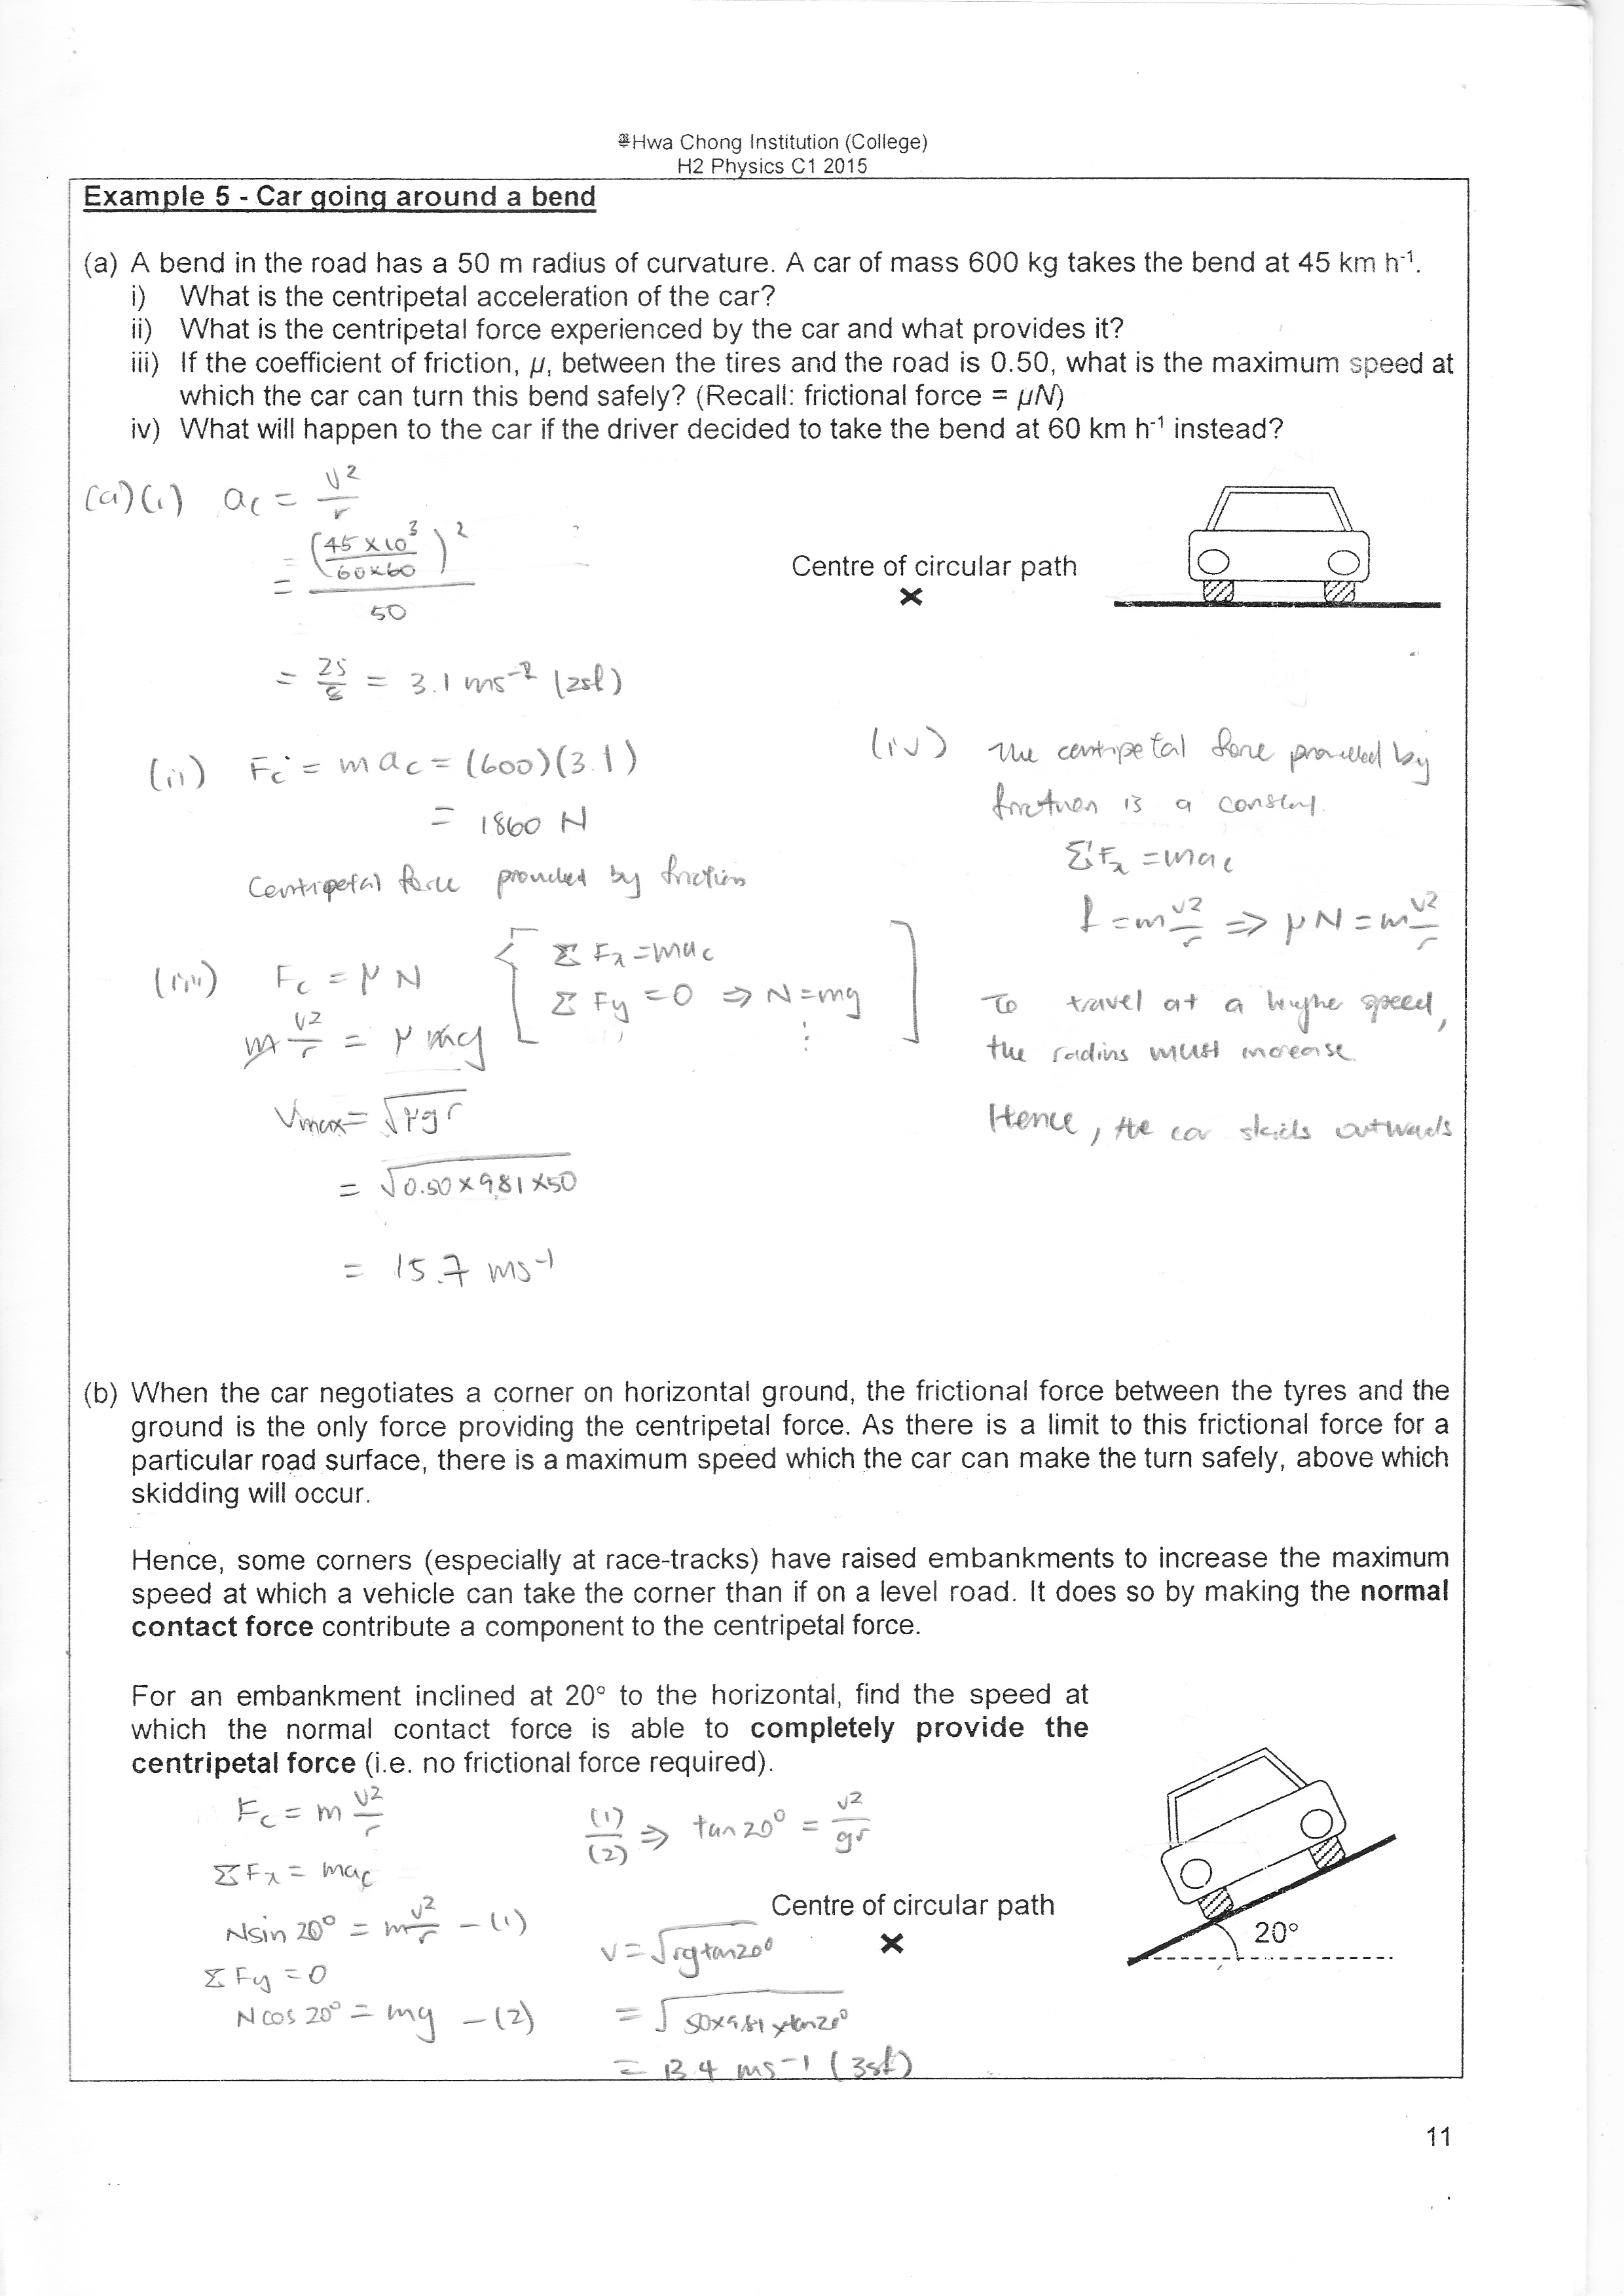 Hwa Chong Institution (College)
H2 Physics C1 2015
Example 5 - Car going around a bend
(a) A bend in the road has a 50 m radius of curvature. A car of mass 600 kg takes the bend at 45 km h⁻¹.
i) What is the centripetal acceleration of the car?
ii) What is the centripetal force experienced by the car and what provides it?
iii) If the coefficient of friction, μ, between the tires and the road is 0.50, what is the maximum speed at
which the car can turn this bend safely? (Recall: frictional force = μN)
iv) What will happen to the car if the driver decided to take the bend at 60 km h⁻¹ instead?
(a)(i) ac = v²/r
= (45 × 10³ / 60×60)² / 50
= 25/8 = 3.1 ms⁻² (2sf)
Centre of circular path
×
(ii) Fc = mac = (600)(3.1)
= 1860 N
Centripetal force provided by friction
(iii) Fc = μN
m v²/r = μmg
[ Σ Fx = mac
Σ Fy = 0 ⇒ N = mg
⋮ ]
Vmax = √μgr
= √0.50×9.81×50
= 15.7 ms⁻¹
(iv) The centripetal force provided by
friction is a constant.
ΣFx = mac
f = m v²/r ⇒ μN = m v²/r
To travel at a higher speed,
the radius must increase.
Hence, the car skids outwards
(b) When the car negotiates a corner on horizontal ground, the frictional force between the tyres and the
ground is the only force providing the centripetal force. As there is a limit to this frictional force for a
particular road surface, there is a maximum speed which the car can make the turn safely, above which
skidding will occur.
Hence, some corners (especially at race-tracks) have raised embankments to increase the maximum
speed at which a vehicle can take the corner than if on a level road. It does so by making the normal
contact force contribute a component to the centripetal force.
For an embankment inclined at 20° to the horizontal, find the speed at
which the normal contact force is able to completely provide the
centripetal force (i.e. no frictional force required).
Fc = m v²/r
ΣFx = mac
Nsin 20° = m v²/r – (1)
Σ Fy = 0
N cos 20° = mg – (2)
(1)/(2) ⇒ tan 20° = v²/gr
v = √rgtan20°
= √50×9.81×tan20°
= 13.4 ms⁻¹ (3sf)
Centre of circular path
×
20°
11